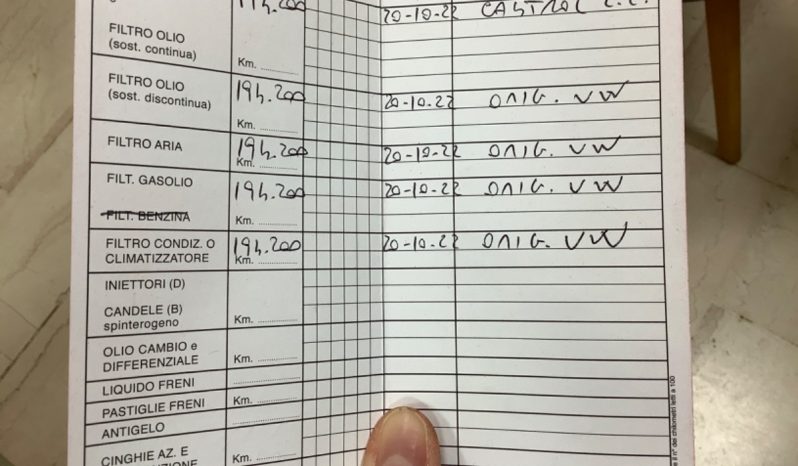 194.200 20-10-22 CASTROL
FILTRO OLIO
(sost. continua)
Km.
FILTRO OLIO
(sost. discontinua)
194.200 20-10-22 ORIG. VW
Km.
FILTRO ARIA 194.200 20-10-22 ORIG. VW
Km.
FILT. GASOLIO 194.200 20-10-22 ORIG. VW
FILT. BENZINA Km.
FILTRO CONDIZ. O 194.200 20-10-22 ORIG. VW
CLIMATIZZATORE Km.
INIETTORI (D)
CANDELE (B)
spinterogeno Km.
OLIO CAMBIO e
DIFFERENZIALE Km.
LIQUIDO FRENI
PASTIGLIE FRENI Km.
ANTIGELO
CINGHIE AZ. E
Km.
il n° dei chilometri letti a 100